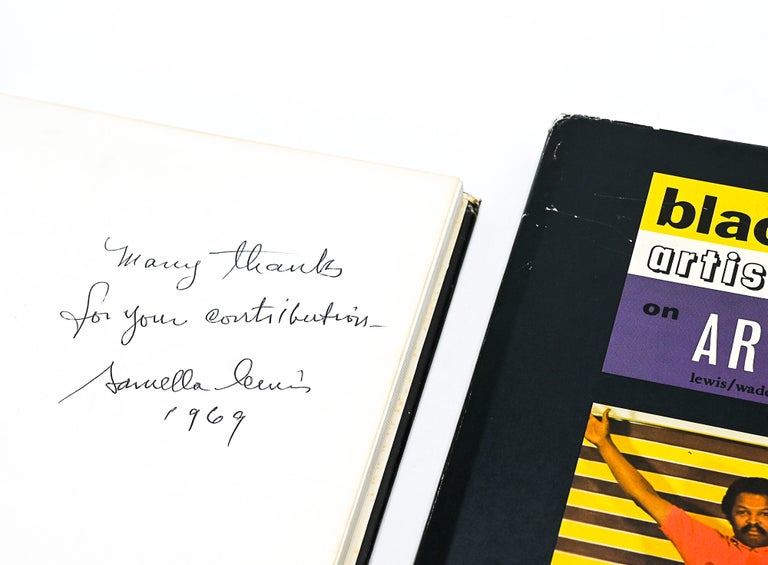 Many thanks
for your contribution—
Samella Lewis
1969
blac
artis
on AR
lewis/wade